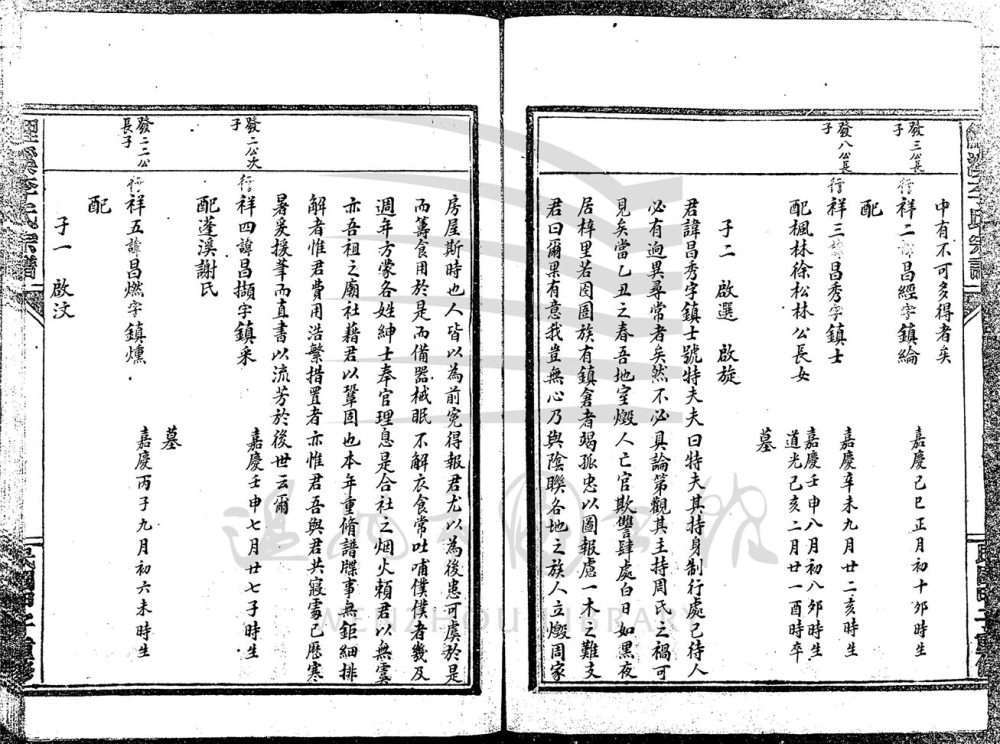 申有不可多得者矣
發三公長子
行祥二諱昌經字鎮綸
嘉慶己巳正月初十卯時生
配
發八公長子
行祥三諱昌秀字鎮士
嘉慶辛未九月廿二亥時生
配楓林徐松林公長女
嘉慶壬申八月初八卯時生
道光己亥二月廿一酉時卒
墓
子二 啟選 啟旋
君諱昌秀字鎮士號特夫夫曰特夫其持身制行處己待人
必有逈異尋常者矣然不必具論第觀其主持周氏之禍可
見矣當乙丑之春吾地室燬人亡官欺讐肆處白日如黑夜
居梓里若囹圄族有鎮倉者竭孤忠以圖報慮一木之難支
君曰爾果有意我豈無心乃與陰聯各地之族人立燬周家
房屋斯時也人皆以為前寃得報君尤以為後患可虞於是
而籌食用於是而備器械眠不解衣食常吐哺僕僕者幾及
週年方蒙各姓紳士奉官理息是合社之烟火頼君以無雲
亦吾祖之廟社藉君以鞏固也本年重脩譜牒事無鉅細排
解者惟君費用浩繁措置者亦惟君吾與君共寢處已歷寒
暑爰援筆而直書以流芳於後世云爾
發二公次子
行祥四諱昌擷字鎮采
嘉慶壬申七月廿七子時生
配蓬溪謝氏
發二二公長子
行祥五諱昌燃字鎮燻
嘉慶丙子九月初六未時生
配
墓
子一 啟汶
李氏宗譜
WENZHOU LIBRARY